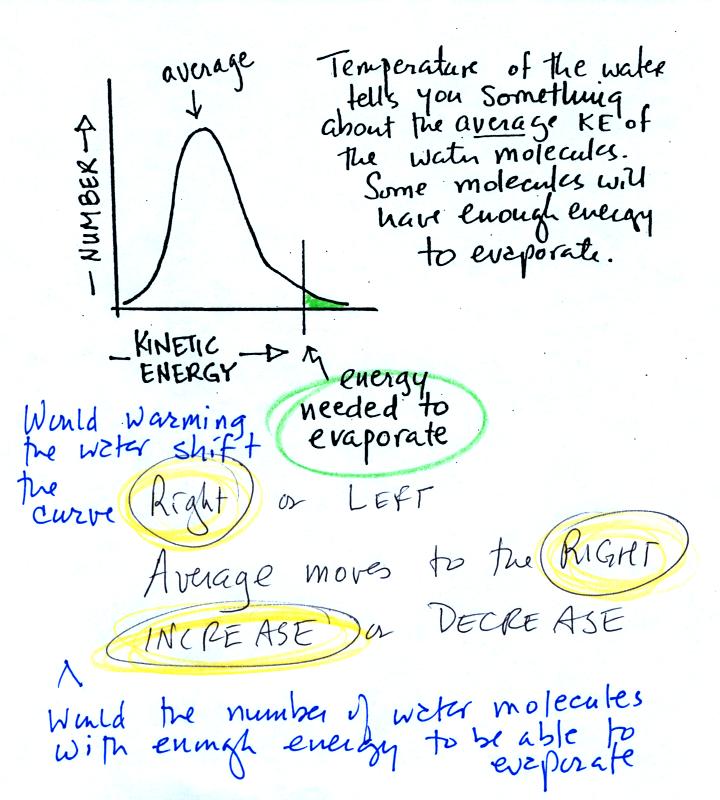 average
Temperature of the water
tells you something
about the average KE of
the water molecules.
Some molecules will
have enough energy
to evaporate.
NUMBER
KINETIC
ENERGY
energy
needed to
evaporate
Would warming
the water shift
the
curve Right or LEFT
Average moves to the RIGHT
INCREASE or DECREASE
Would the number of water molecules
with enough energy to be able to
evaporate